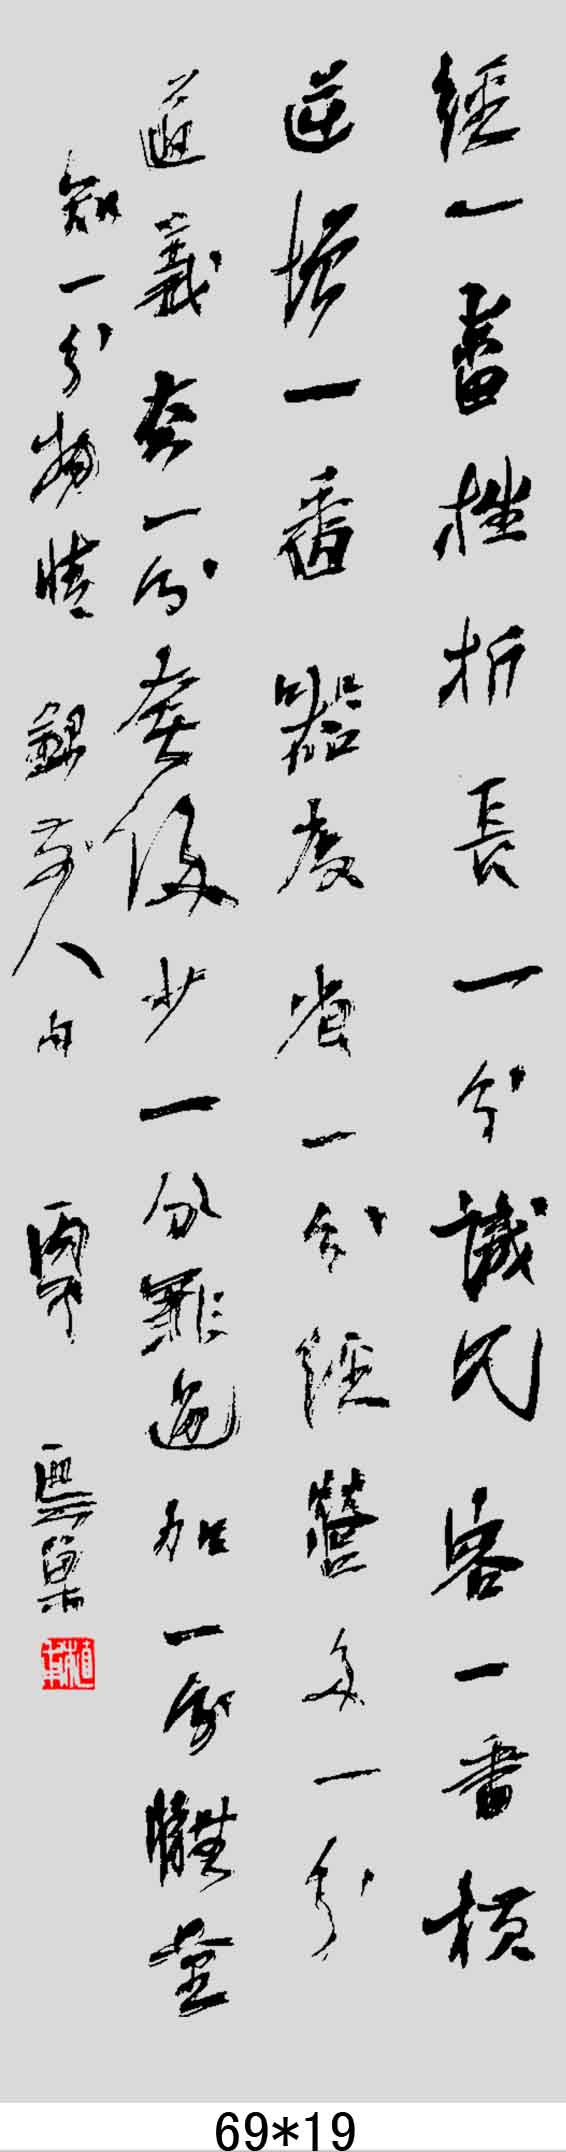 經一番挫折長一分識見容一番橫
逆增一番器度省一分經營多一分
道義去一分奢侈少一分罪過加一分體
知一分物情 錄前人句 雲巢
69*19